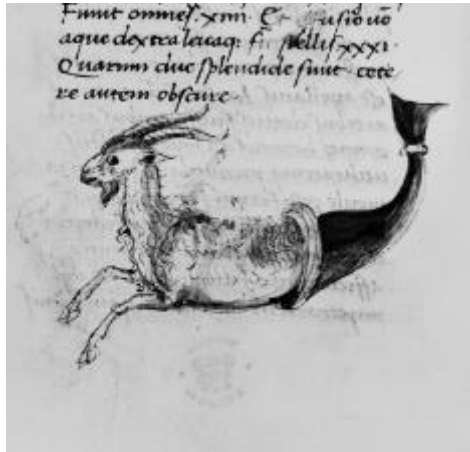 Fiunt omnes. xiiii. Et fusio uō
aque dextra leuaq; fit stellis xxxi.
Quarum due splendide sunt cete
re autem obscure